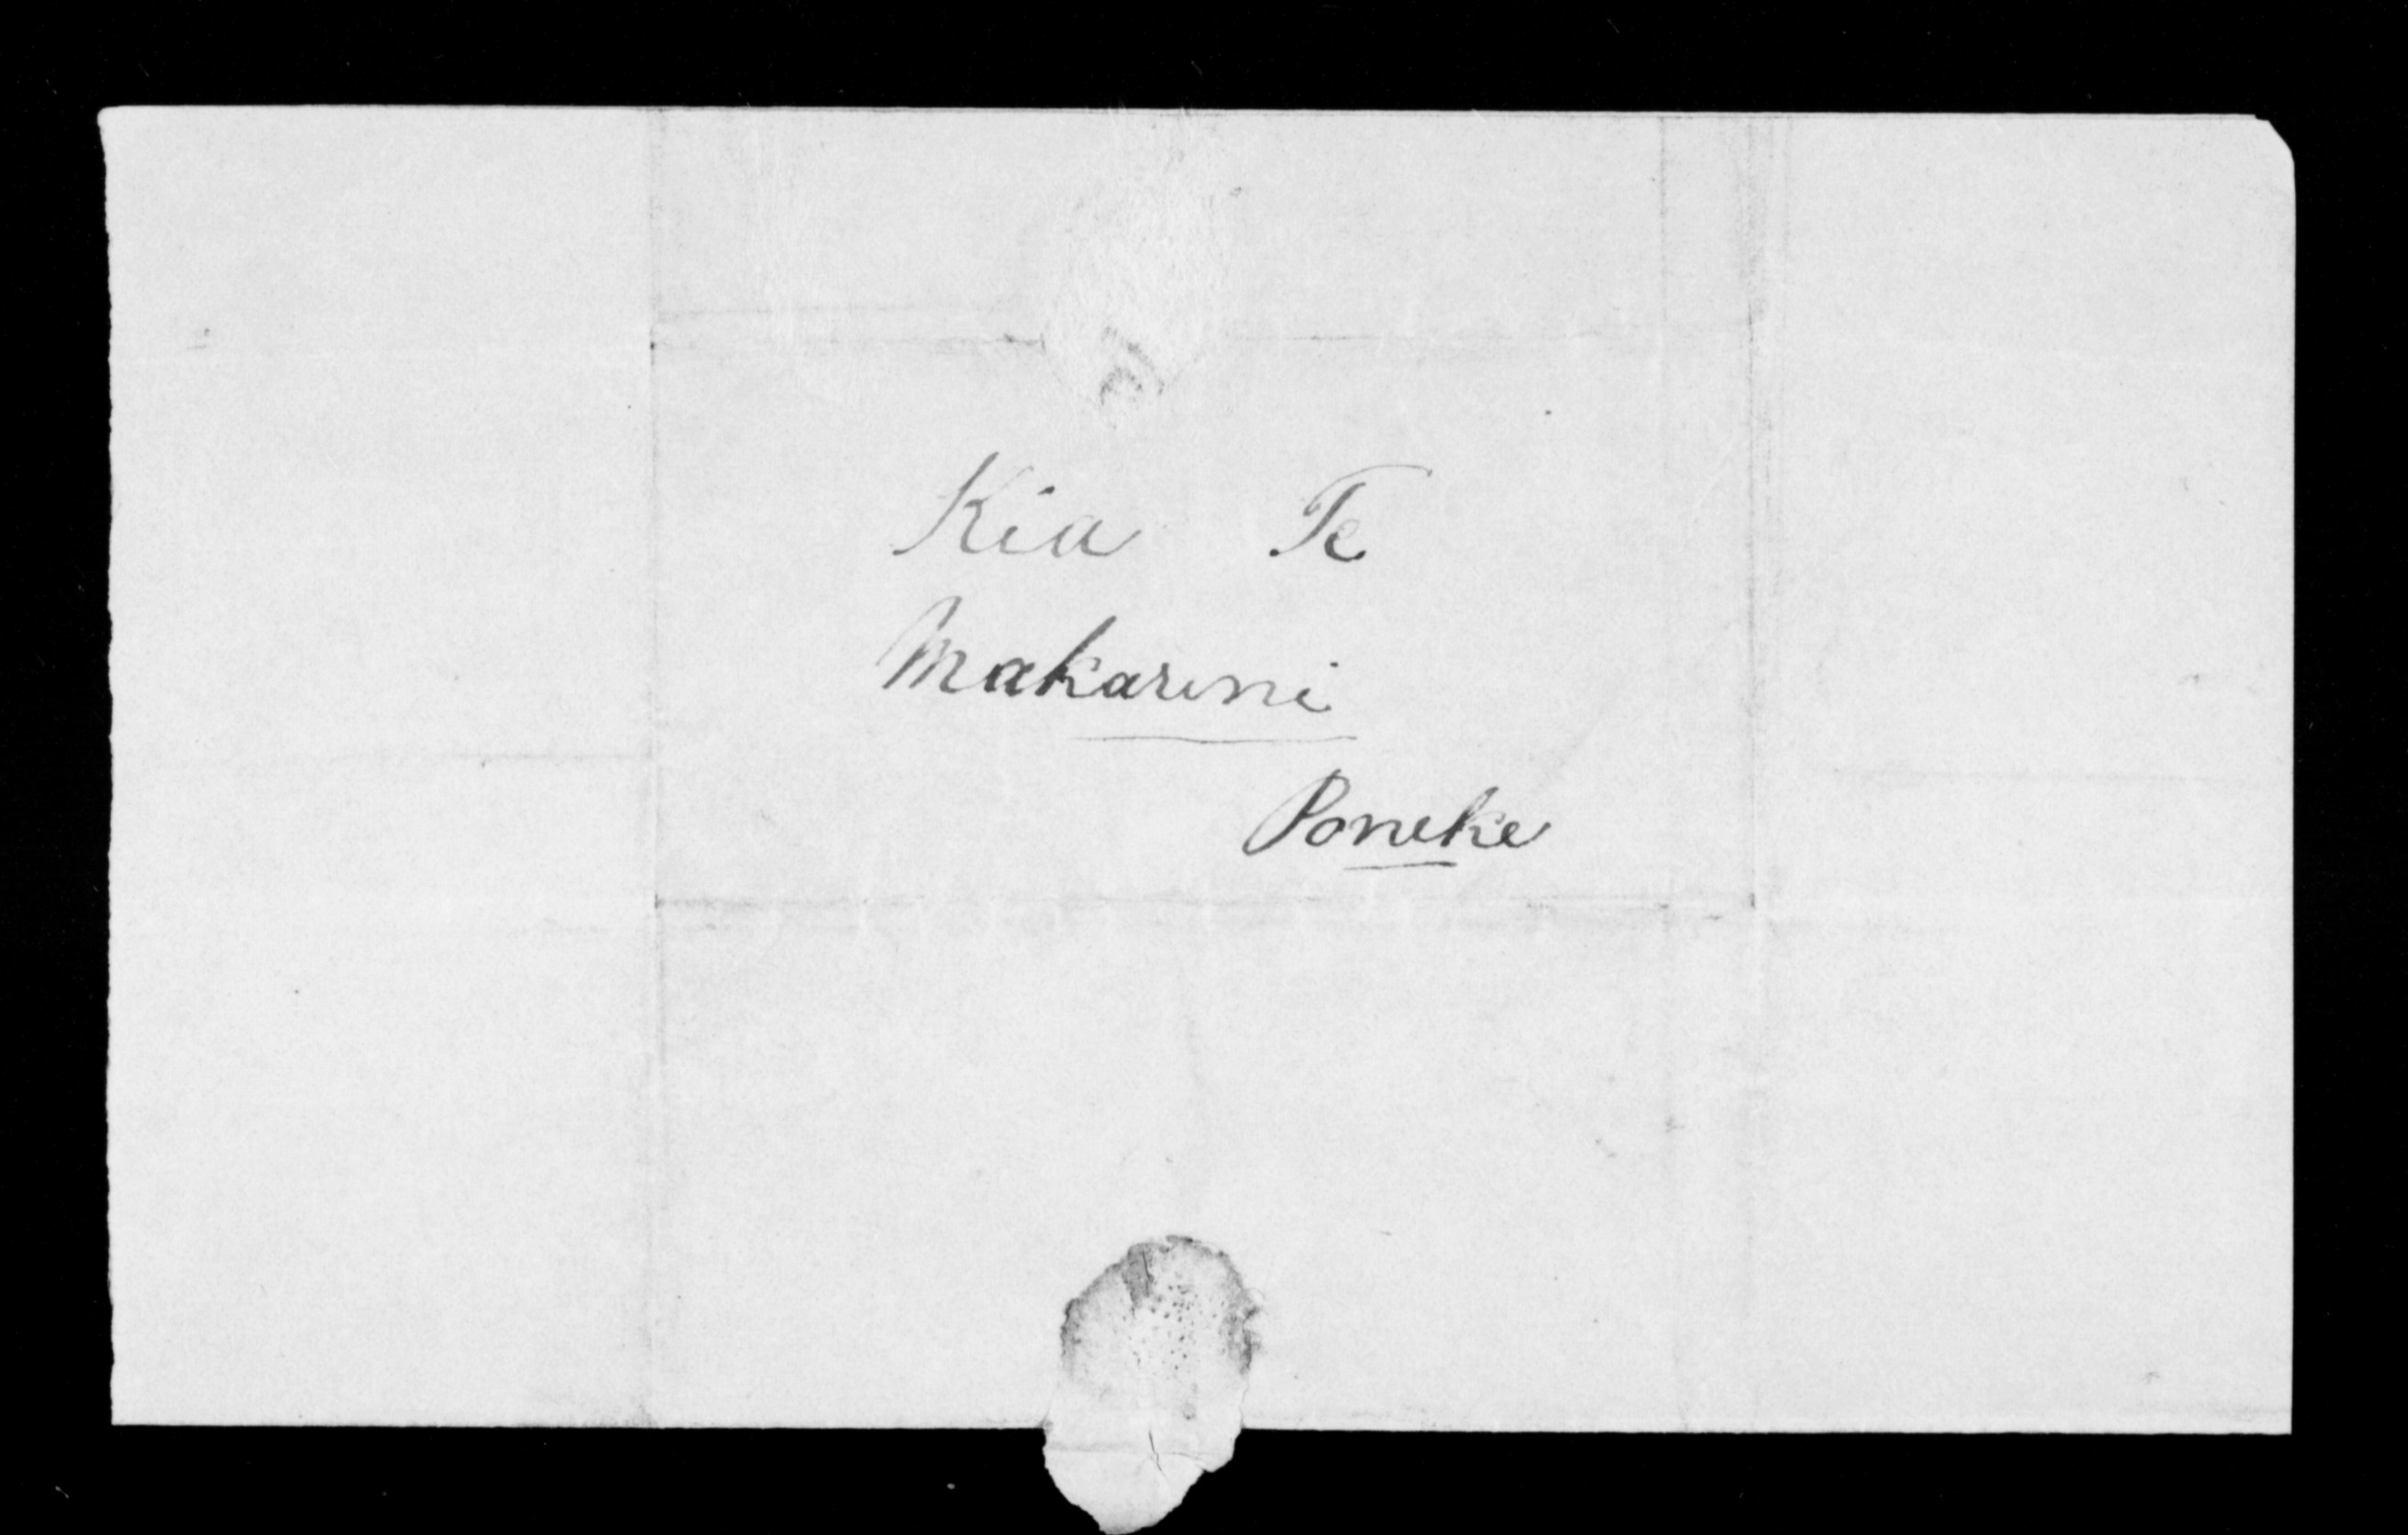 Kia Te
Makarini
Poneke